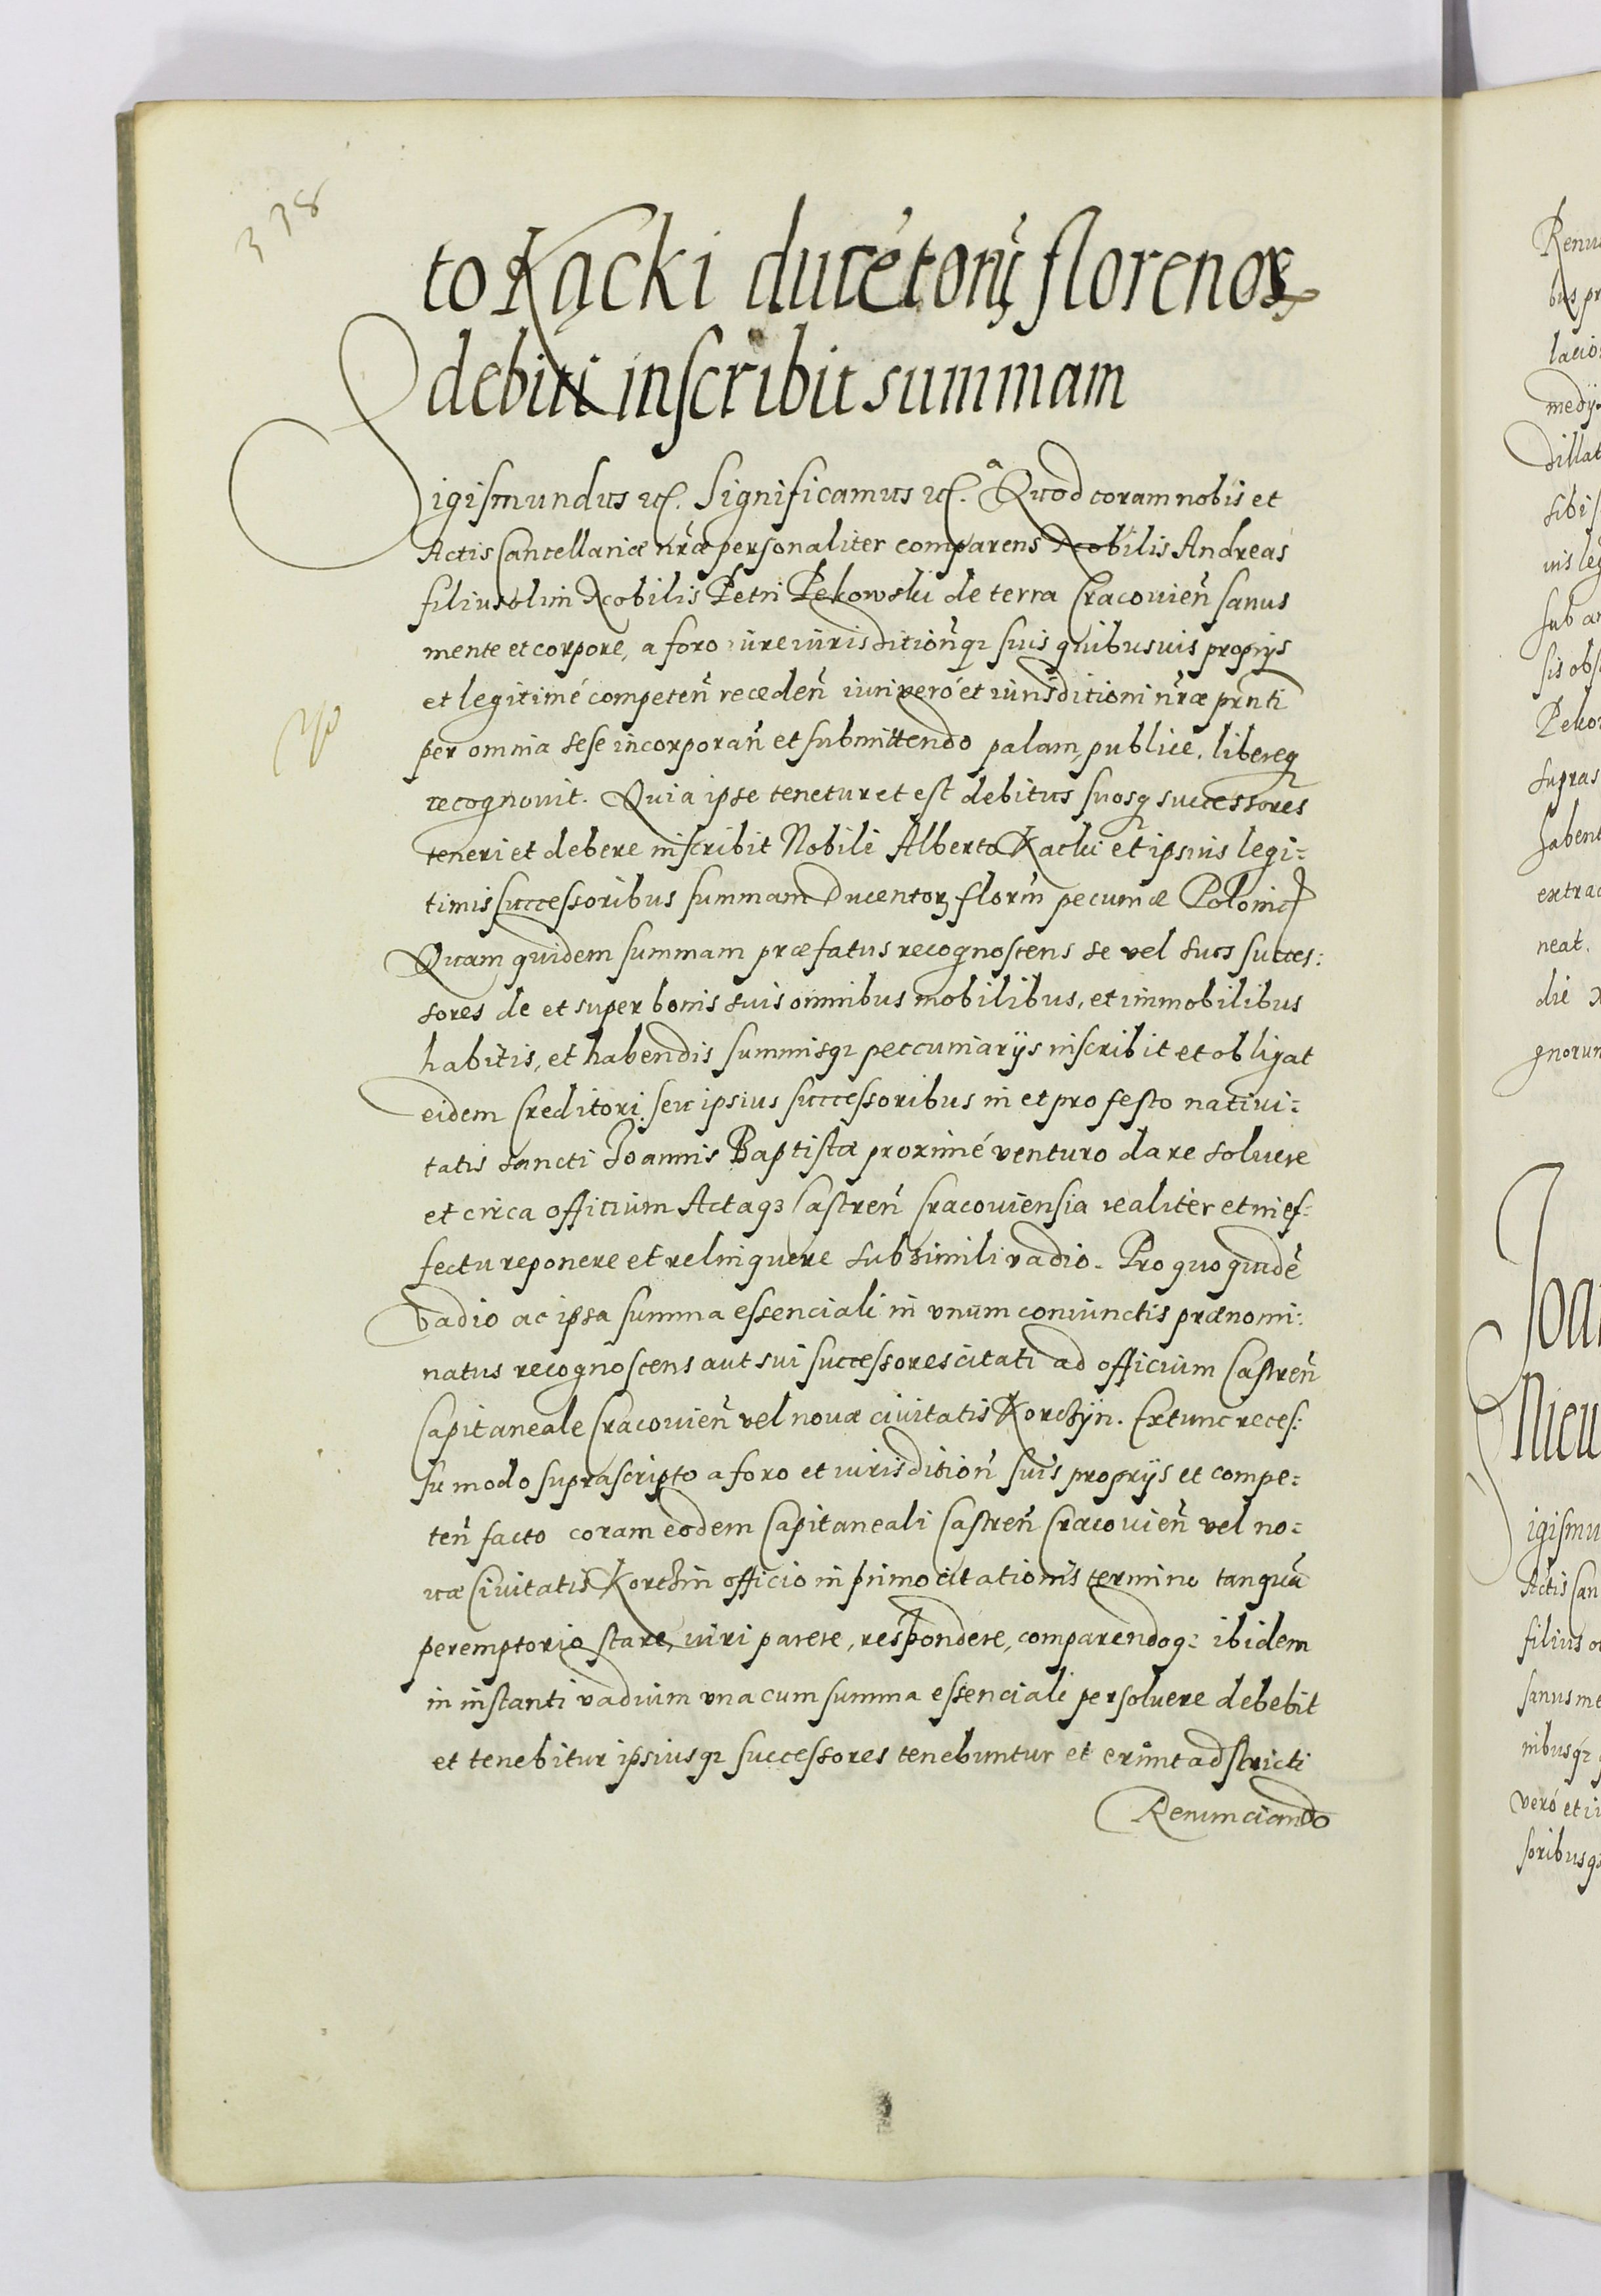 338
to Kącki ducétorų florenoꝝ
debiti inscribit summam
Sigismundus ꝛcꝭ. Significamus ꝛcꝭ. Quod coram nobis et
Actis Cancellariæ nr̃æ personaliter comparens Nobilis Andreas
filius olim Nobilis Petri Pękowski de terra Cracouien̄ sanus
mente et corpore, a foro iure iurisdition̄qꝫ suis quibusuis proprijs
et legitimé competen̄ receden̄ iuri veró et iurisditioni nr̃æ pr̃nti
per omnia sese incorporan̄ et submittendo palam, publice, libereqꝫ
recognouit. Quia ipse tenetur et est debitus suosqꝫ successores
teneri et debere inscribit Nobili Alberto Kącki et ipsius legi=
timis successoribus summam Ducentoꝝ florin̄ pecuniæ Polonicꝭ
Quam quidem summam præfatus recognoscens se vel suos succes:
sores de et super bonis suis omnibus mobilibus, et immobilibus
habitis, et habendis summisqꝫ peccuniarijs inscribit et obligat
eidem Creditori seu ipsius successoribus in et pro festo natiui=
tatis sancti Joannis Baptistæ proximé venturo dare soluere
et circa officium Actaqꝫ Castren̄ Cracouiensia realiter et in ef=
fectu reponere et relinquere sub simili vadio. Pro quo quidē
vadio ac ipsa summa essenciali in vnum coniunctis prænomi:
natus recognoscens aut sui successores citati ad officium Castren̄
Capitaneale Cracouien̄ vel nouæ ciuitatis Korczÿn. Extunc reces:
su modo suprascripto a foro et iurisdition̄ suis proprijs et compe=
ten̄ facto coram eodem Capitaneali Castren̄ Cracouien̄ vel no=
uæ Ciuitatis Korczin officio in primo citationis termino tanquā
peremptorio stare, iuri parere, respondere, comparendoqꝫ ibidem
in instanti vadium vna cum summa essenciali persoluere debebit
et tenebitur ipsiusqꝫ successores tenebuntur et erunt adstricti
Renunciando